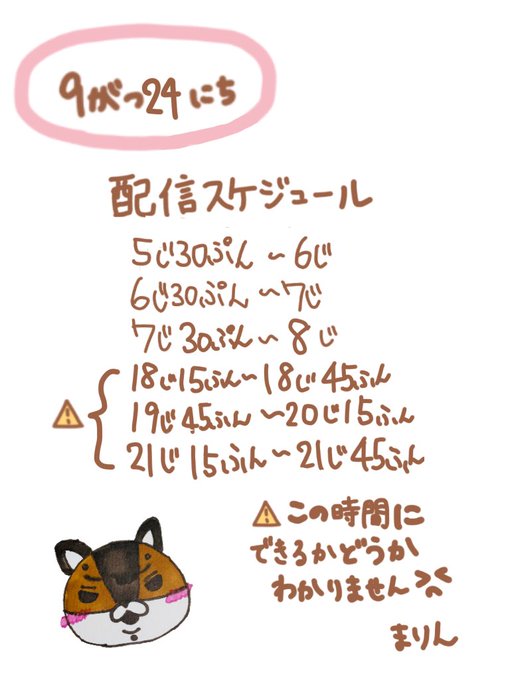 9がつ24にち
配信スケジュール
5じ30ぷん~6じ
6じ30ぷん~7じ
7じ30ぷん~8じ
18じ15ふん~18じ45ふん
19じ45ふん~20じ15ふん
21じ15ふん~21じ45ふん
⚠この時間に
できるかどうか
わかりません><
まりん